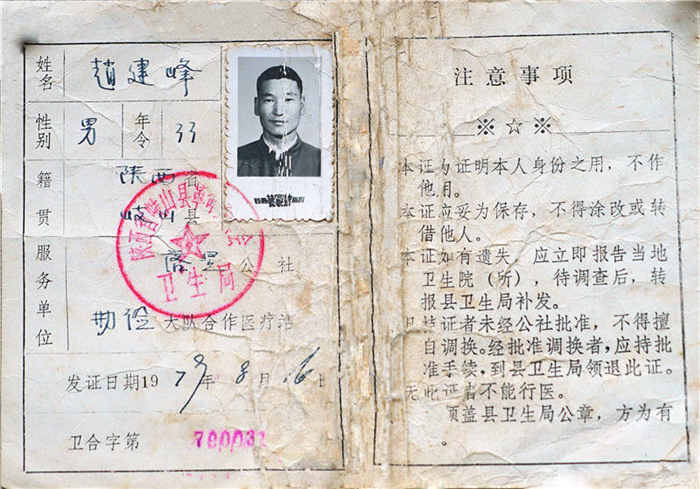 姓名 趙建峰
性别 男 年令 33
籍贯 陕西省
岐山县
服务单位 公社
大队合作医疗站
发证日期1979年8月16日
卫合字第 790031
卫生局
注意事项
※☆※
本证为证明本人身份之用，不作
他用。
本证应妥为保存，不得涂改或转
借他人。
本证如有遗失，应立即报告当地
卫生院（所），待调查后，转
报县卫生局补发。
持证者未经公社批准，不得擅
自调换。经批准调换者，应持批
准手续，到县卫生局领退此证。
无此证者不能行医。
须盖县卫生局公章，方为有
。